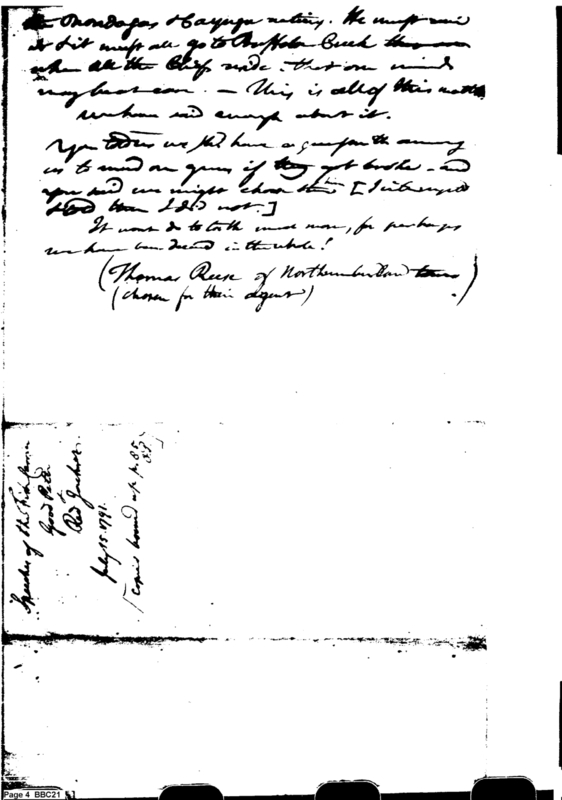 the Onondagas & Cayuga nations. He must rise
& it must all go to Buffalo Creek
when all the Chiefs reside - that our minds
may be at ease. — This is all of this matter
we have said enough about it.
You told us we shd. have a gunsmith among
us to mend our guns if they got broke - and
you said we might choose him [I interrupted
& told them I did not.]
It wont do to talk much more, for perhaps
we have been deceived in the whole!
(Thomas Reese of Northumberland town)
(chosen for their agent)
Speeches of the Fish Carrier
Good Peter
&
Red Jacket.
July 15. 1791.
Copies bound up p. 85
Page 4 BBC21 51